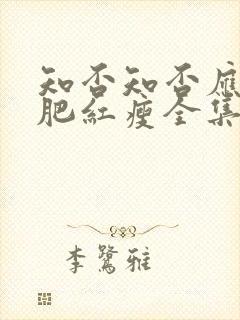 知否知否應
肥紅瘦全集
李鷺雅